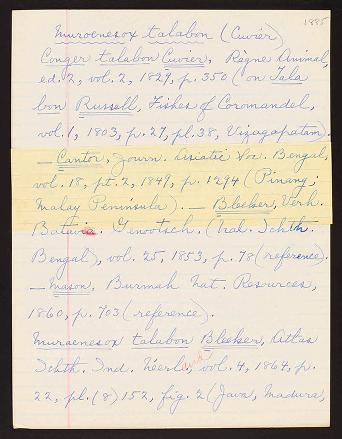 1885
Muroenesox talabon (Cuvier)
Conger talabon Cuvier, Règne Animal,
ed. 2, vol. 2, 1829, p. 350 (on Tala
bon Russell, Fishes of Coromandel,
vol. 1, 1803, p. 27, pl. 38, Vizagapatam).
— Cantor, Journ. Asiatic Soc. Bengal,
vol. 18, pt. 2, 1849, p. 1294 (Pinang;
Malay Peninsula). — Bleeker, Verh.
Batavia. Genootsch. (Nal. Ichth.
Bengal), vol. 25, 1853, p. 78 (reference).
— Mason, Burmah Nat. Resources,
1860, p. 703 (reference).
Muraenesox talabon Bleeker, Atlas
Ichth. Ind. Néerland, vol. 4, 1864, p.
22, pl. (8) 152, fig. 2 (Java, Madura,